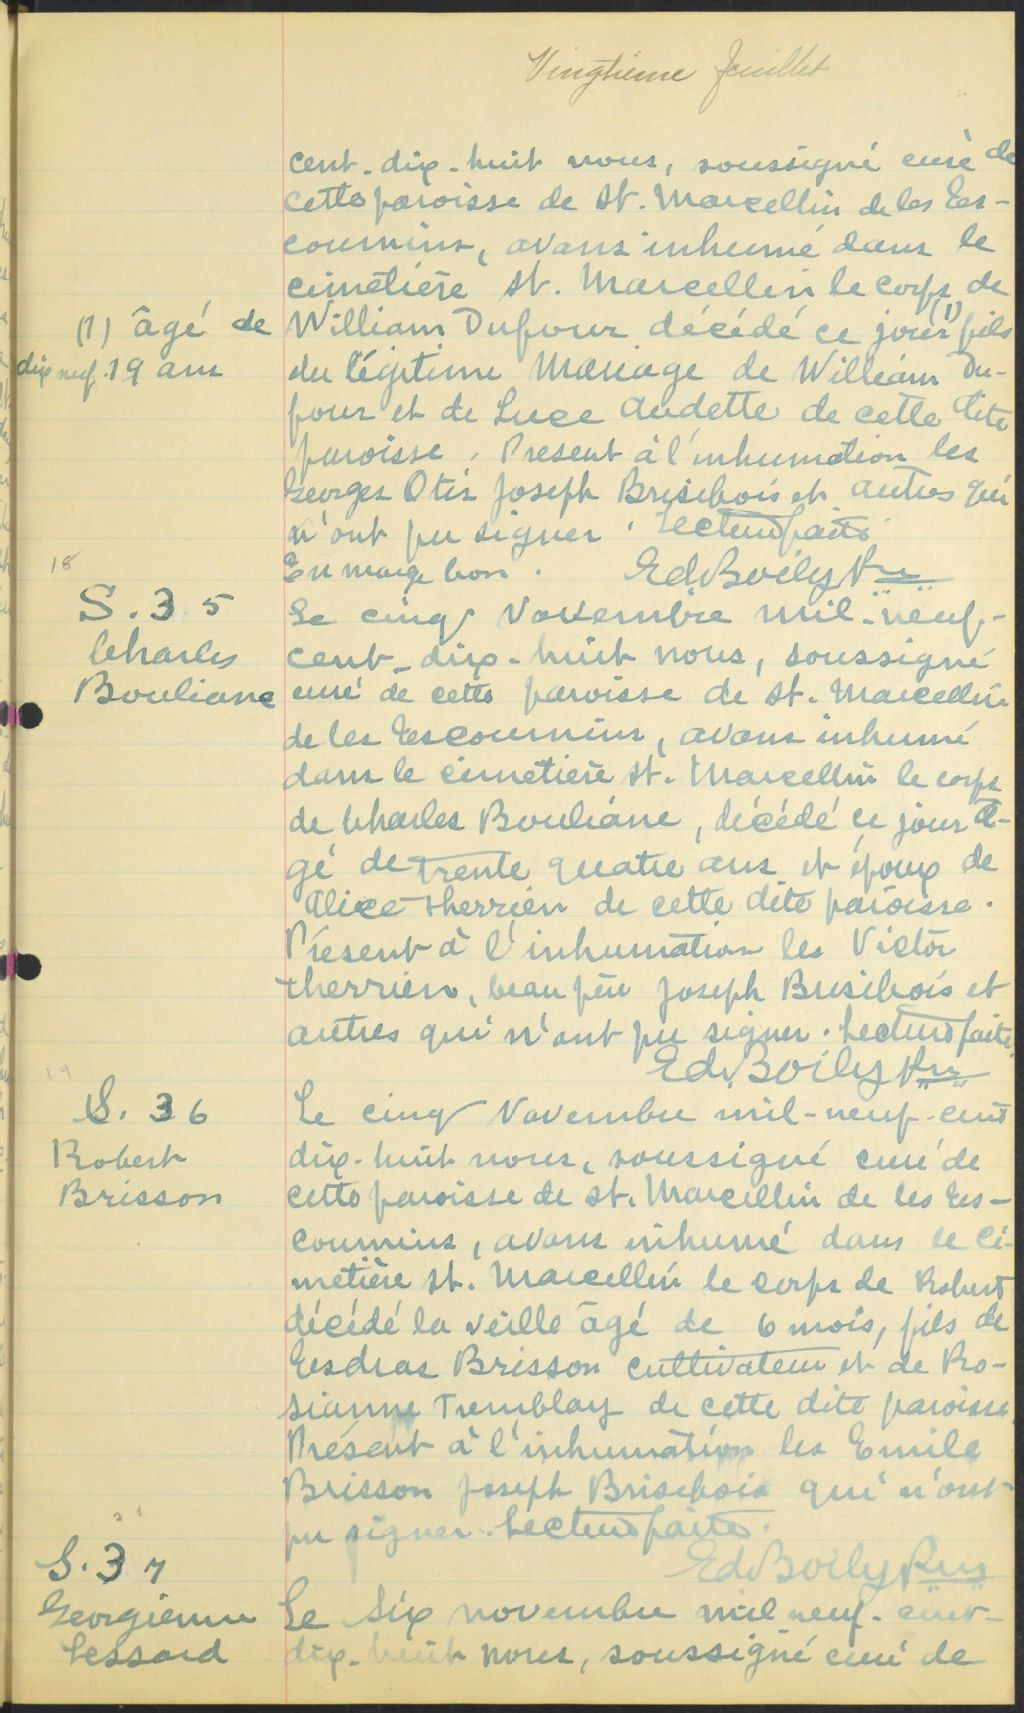 Vingtième feuillet
cent-dix-huit nous, soussigné curé de
cette paroisse de St. Marcellin de les Es-
coumins, avons inhumé dans le
cimetière St. Marcellin le corps de
(1) âgé de
dix neuf 19 ans
William Dufour décédé ce jour (1) fils
du légitime Mariage de William Du-
four et de Luce Audette de cette dite
paroisse. Present à l'inhumation les
Georges Otis Joseph Brisebois et autres qui
n'ont pu signer. Lecture faite.
En marge bon. Ed. Boily Ptre
18
S. 35
Charles
Bouliane
Le cinq Novembre mil-neuf-
cent-dix-huit nous, soussigné
curé de cette paroisse de St. Marcellin
de les Escoumins, avons inhumé
dans le cimetière St. Marcellin le corps
de Charles Bouliane, décédé ce jour â-
gé de trente quatre ans et époux de
Alice Therrien de cette dite paroisse.
Présent à l'inhumation les Victor
Therrien, beau père Joseph Brisebois et
autres qui n'ont pu signer. Lecture faite.
Ed. Boily Ptre
19
S. 36
Robert
Brisson
Le cinq Novembre mil-neuf-cent
dix-huit nous, soussigné curé de
cette paroisse de St. Marcellin de les Es-
coumins, avons inhumé dans le ci-
metière St. Marcellin le corps de Robert
décédé la veille âgé de 6 mois, fils de
Esdras Brisson cultivateur et de Ro-
sianne Tremblay de cette dite paroisse
Présent à l'inhumation les Emile
Brisson Joseph Brisebois qui n'ont
pu signer. Lecture faite.
Ed Boily Ptre
S. 37
Georgienne
Lessard
Le Six novembre mil neuf-cent-
dix-huit nous, soussigné curé de